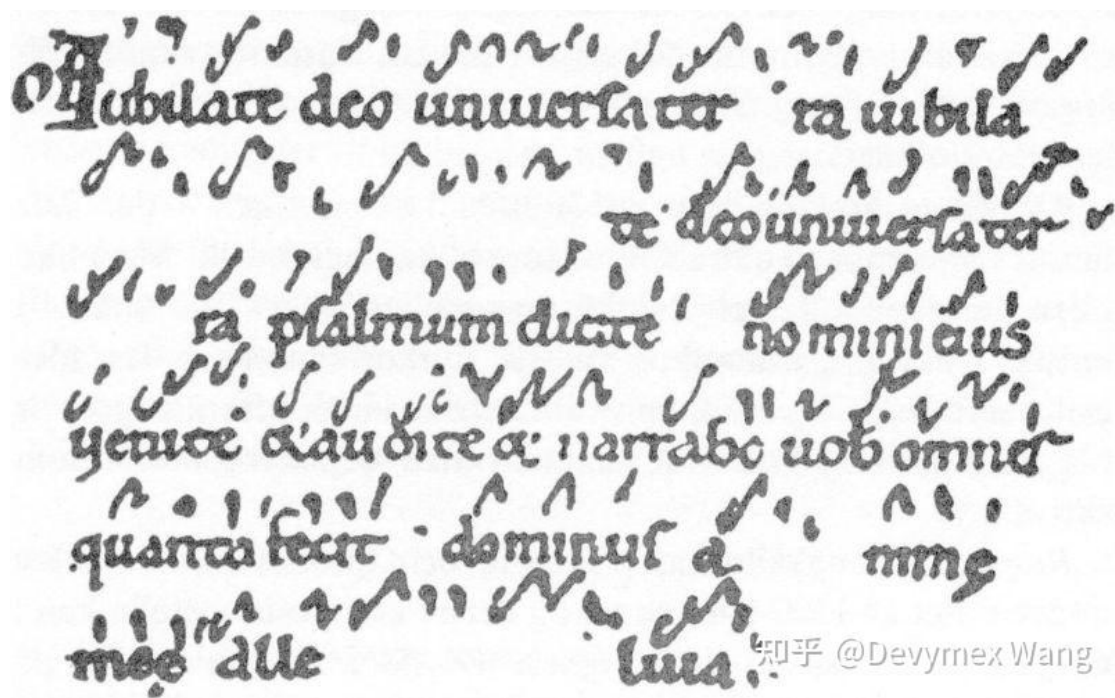 Of Iubilate deo uniuersa ter ra iubila
te deo uniuersa ter
ra psalmum dicite nomini eius
uenite & audite & narrabo uob omnes
quanta fecit dominus a nime
meę alle luia.
知乎 @Devymex Wang